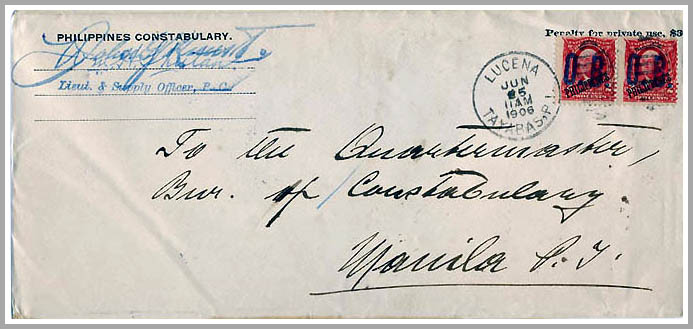 PHILIPPINES CONSTABULARY.
Lieut. & Supply Officer, P. C.
Penalty for private use, $3
LUCENA
JUN
25
11 AM
1906
TAYABAS, P.I.
O B
O B
PHILIPPINES
PHILIPPINES
To the Quartermaster,
Bur. of Constabulary.
Manila P. I.